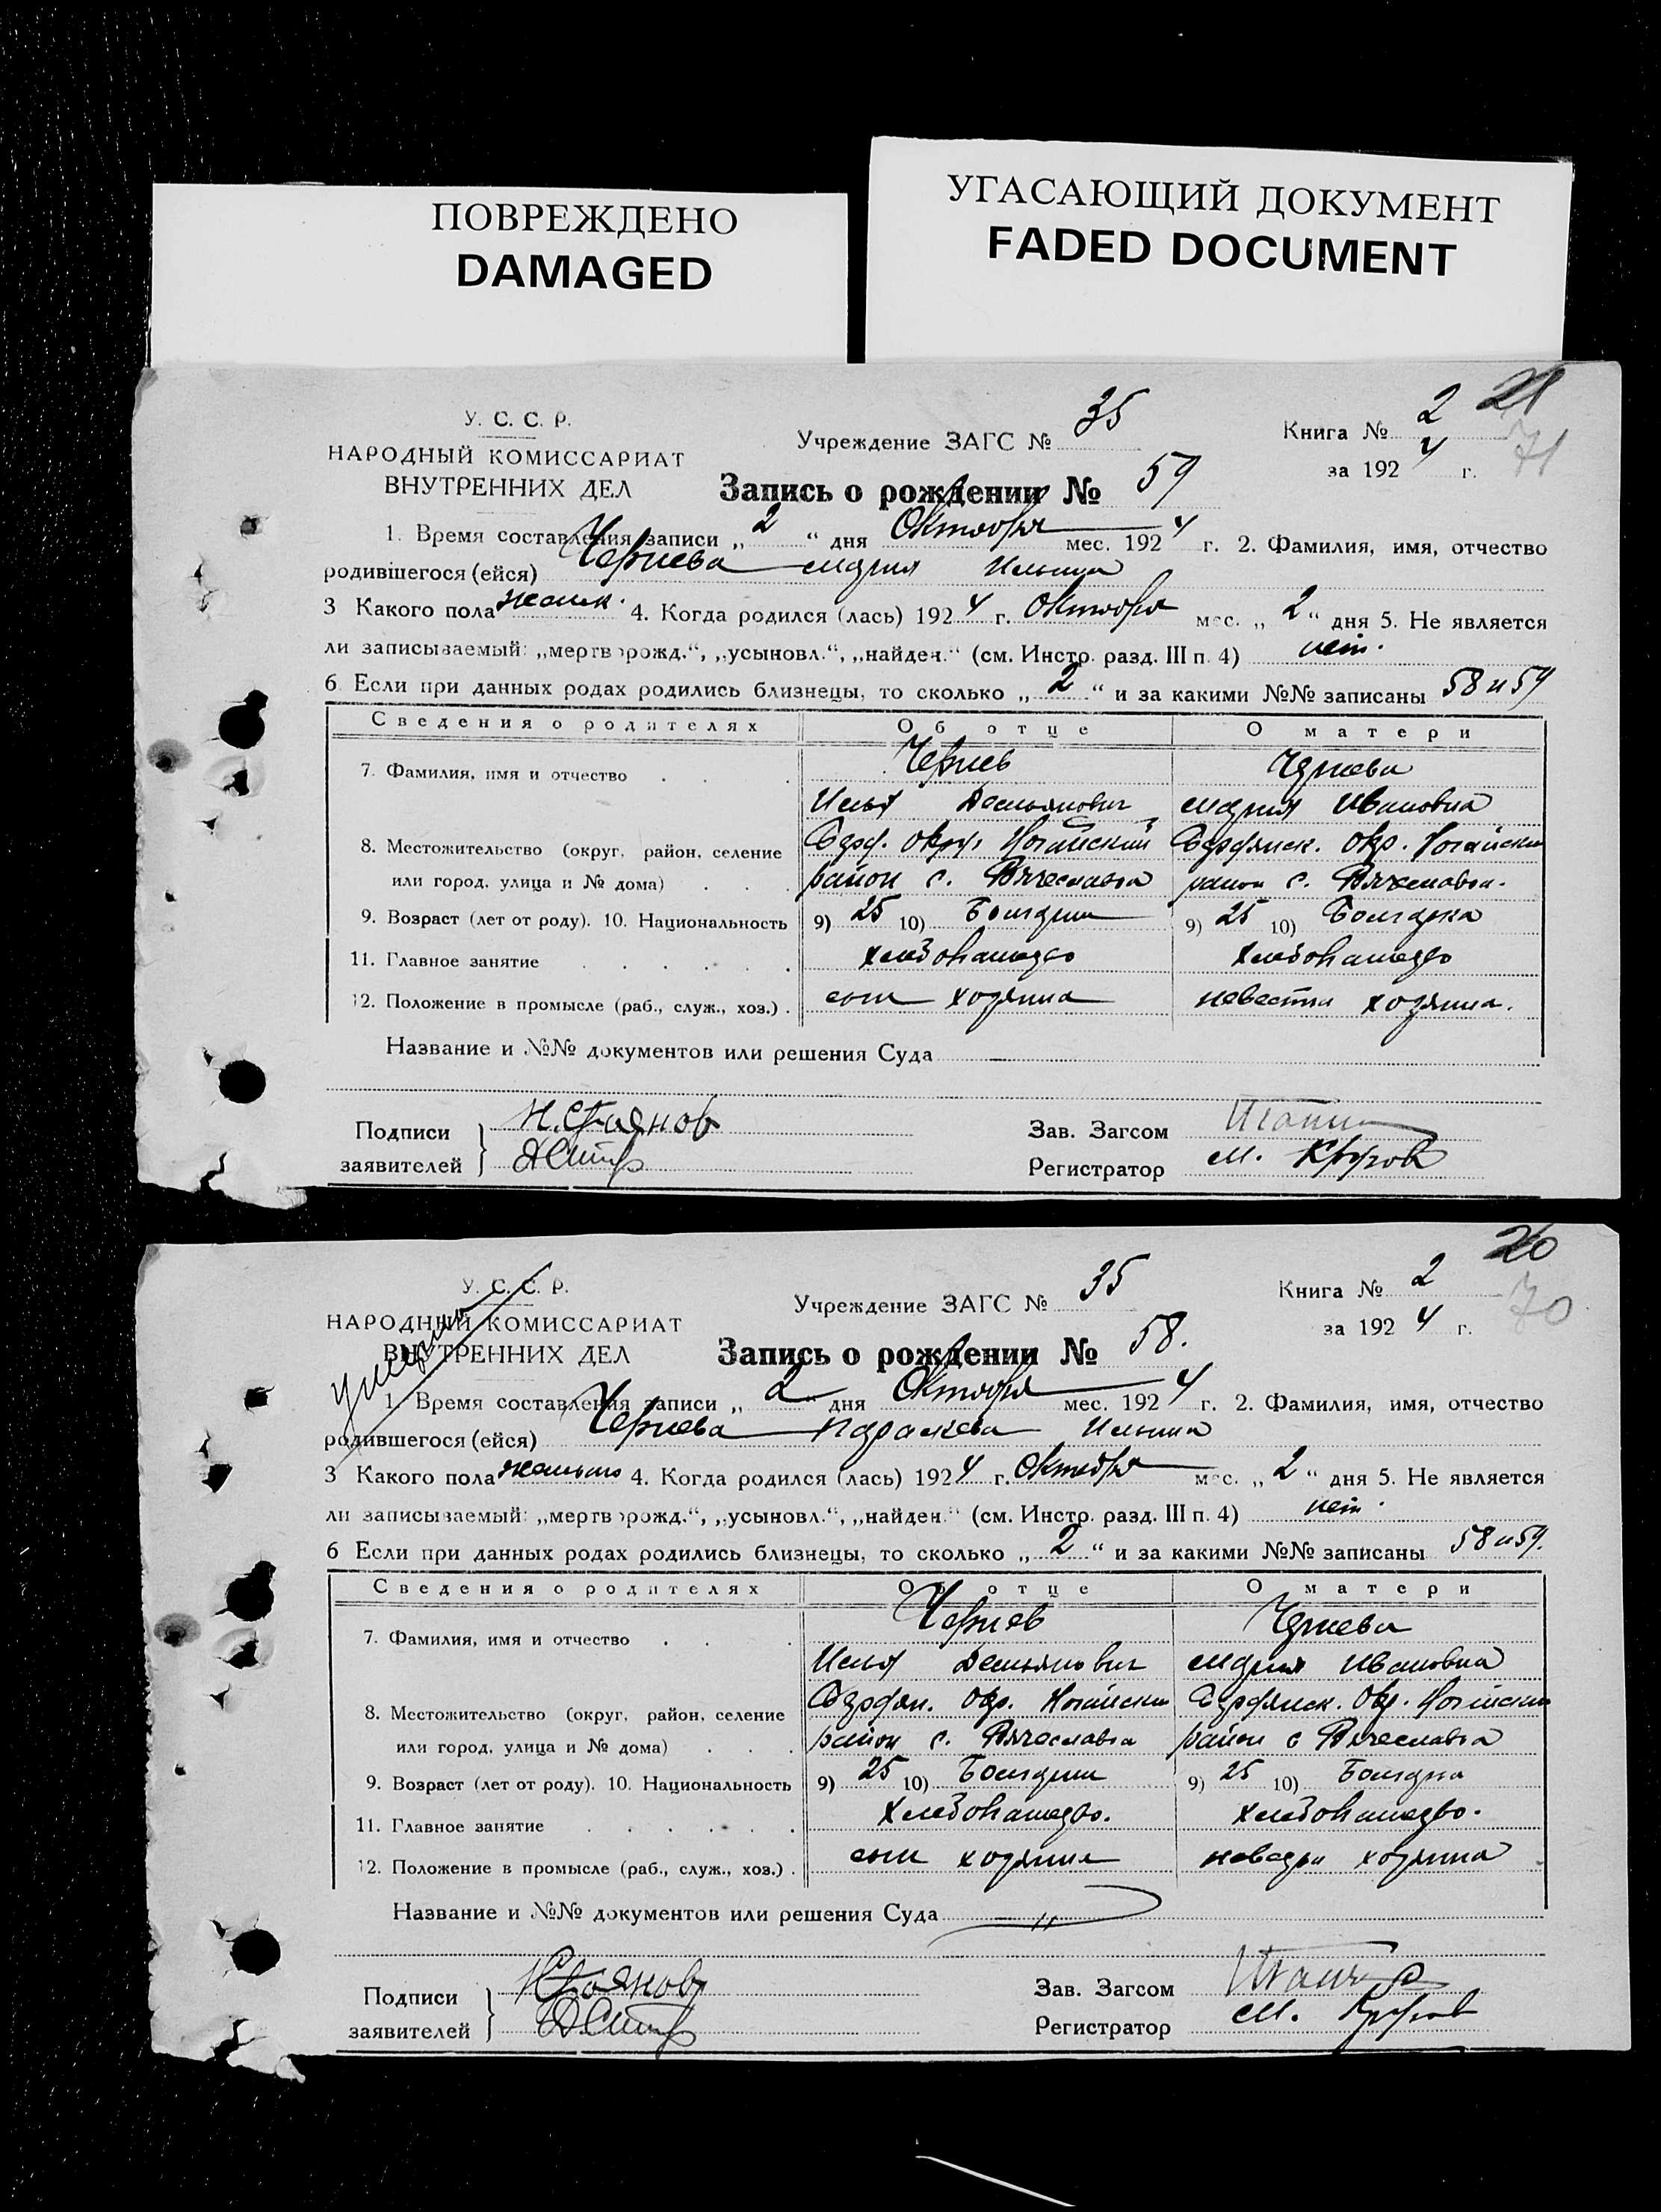 ПОВРЕЖДЕНО
DAMAGED
УГАСАЮЩИЙ ДОКУМЕНТ
FADED DOCUMENT
У. С. С. Р.
НАРОДНЫЙ КОМИССАРИАТ
ВНУТРЕННИХ ДЕЛ
Учреждение ЗАГС № 35
Книга № 2 21
за 1924 г. 71
Запись о рождении № 59
1. Время составления записи „2“ дня Октября мес. 1924 г. 2. Фамилия, имя, отчество
родившегося (ейся) Черпева Мария Ильина
3 Какого пола женск. 4. Когда родился (лась) 1924 г. Октября мес. „2“ дня 5. Не является
ли записываемый: „мертворожд.“, „усыновл.“, „найден.“ (см. Инстр. разд. III п. 4) нет.
6 Если при данных родах родились близнецы, то сколько „2“ и за какими №№ записаны 58 и 59
Сведения о родителях Об отце О матери
7. Фамилия, имя и отчество Черпев Черпева
Илья Демьянович Мария Ивановна
8. Местожительство (округ, район, селение Бэрд. окр. Ногайский Бэрдянск. Окр. Ногайский
или город, улица и № дома) район с. Вячеславка район с. Вячеславка.
9. Возраст (лет от роду). 10. Национальность 9) 25 10) Болгарин 9) 25 10) Болгарка
11. Главное занятие хлебопашество хлебопашество
12. Положение в промысле (раб., служ., хоз.) сын хозяина невестка хозяина.
Название и №№ документов или решения Суда —
Подписи
заявителей
Н. Стоянов
Зав. Загсом
Регистратор М.
У. С. С. Р.
НАРОДНЫЙ КОМИССАРИАТ
ВНУТРЕННИХ ДЕЛ
умерла
Учреждение ЗАГС № 35
Книга № 2 20
за 1924 г. 70
Запись о рождении № 58.
1. Время составления записи „2“ дня Октября мес. 1924 г. 2. Фамилия, имя, отчество
родившегося (ейся) Черпева Параскева Ильина
3 Какого пола женского 4. Когда родился (лась) 1924 г. Октября мес. „2“ дня 5. Не является
ли записываемый: „мертворожд.“, „усыновл.“, „найден.“ (см. Инстр. разд. III п. 4) нет.
6 Если при данных родах родились близнецы, то сколько „2“ и за какими №№ записаны 58 и 59.
Сведения о родителях Об отце О матери
7. Фамилия, имя и отчество Черпев Черпева
Илья Демьянович Мария Ивановна
8. Местожительство (округ, район, селение Бэрдян. Окр. Ногайский Бэрдянск. Окр. Ногайский
или город, улица и № дома) район с. Вячеславка район с Вячеславка
9. Возраст (лет от роду). 10. Национальность 9) 25 10) Болгарин 9) 25 10) Болгарка
11. Главное занятие хлебопашество. хлебопашество.
12. Положение в промысле (раб., служ., хоз.) сын хозяина хозяина
Название и №№ документов или решения Суда "
Подписи
заявителей
Н Стоянов
Зав. Загсом
Регистратор М.